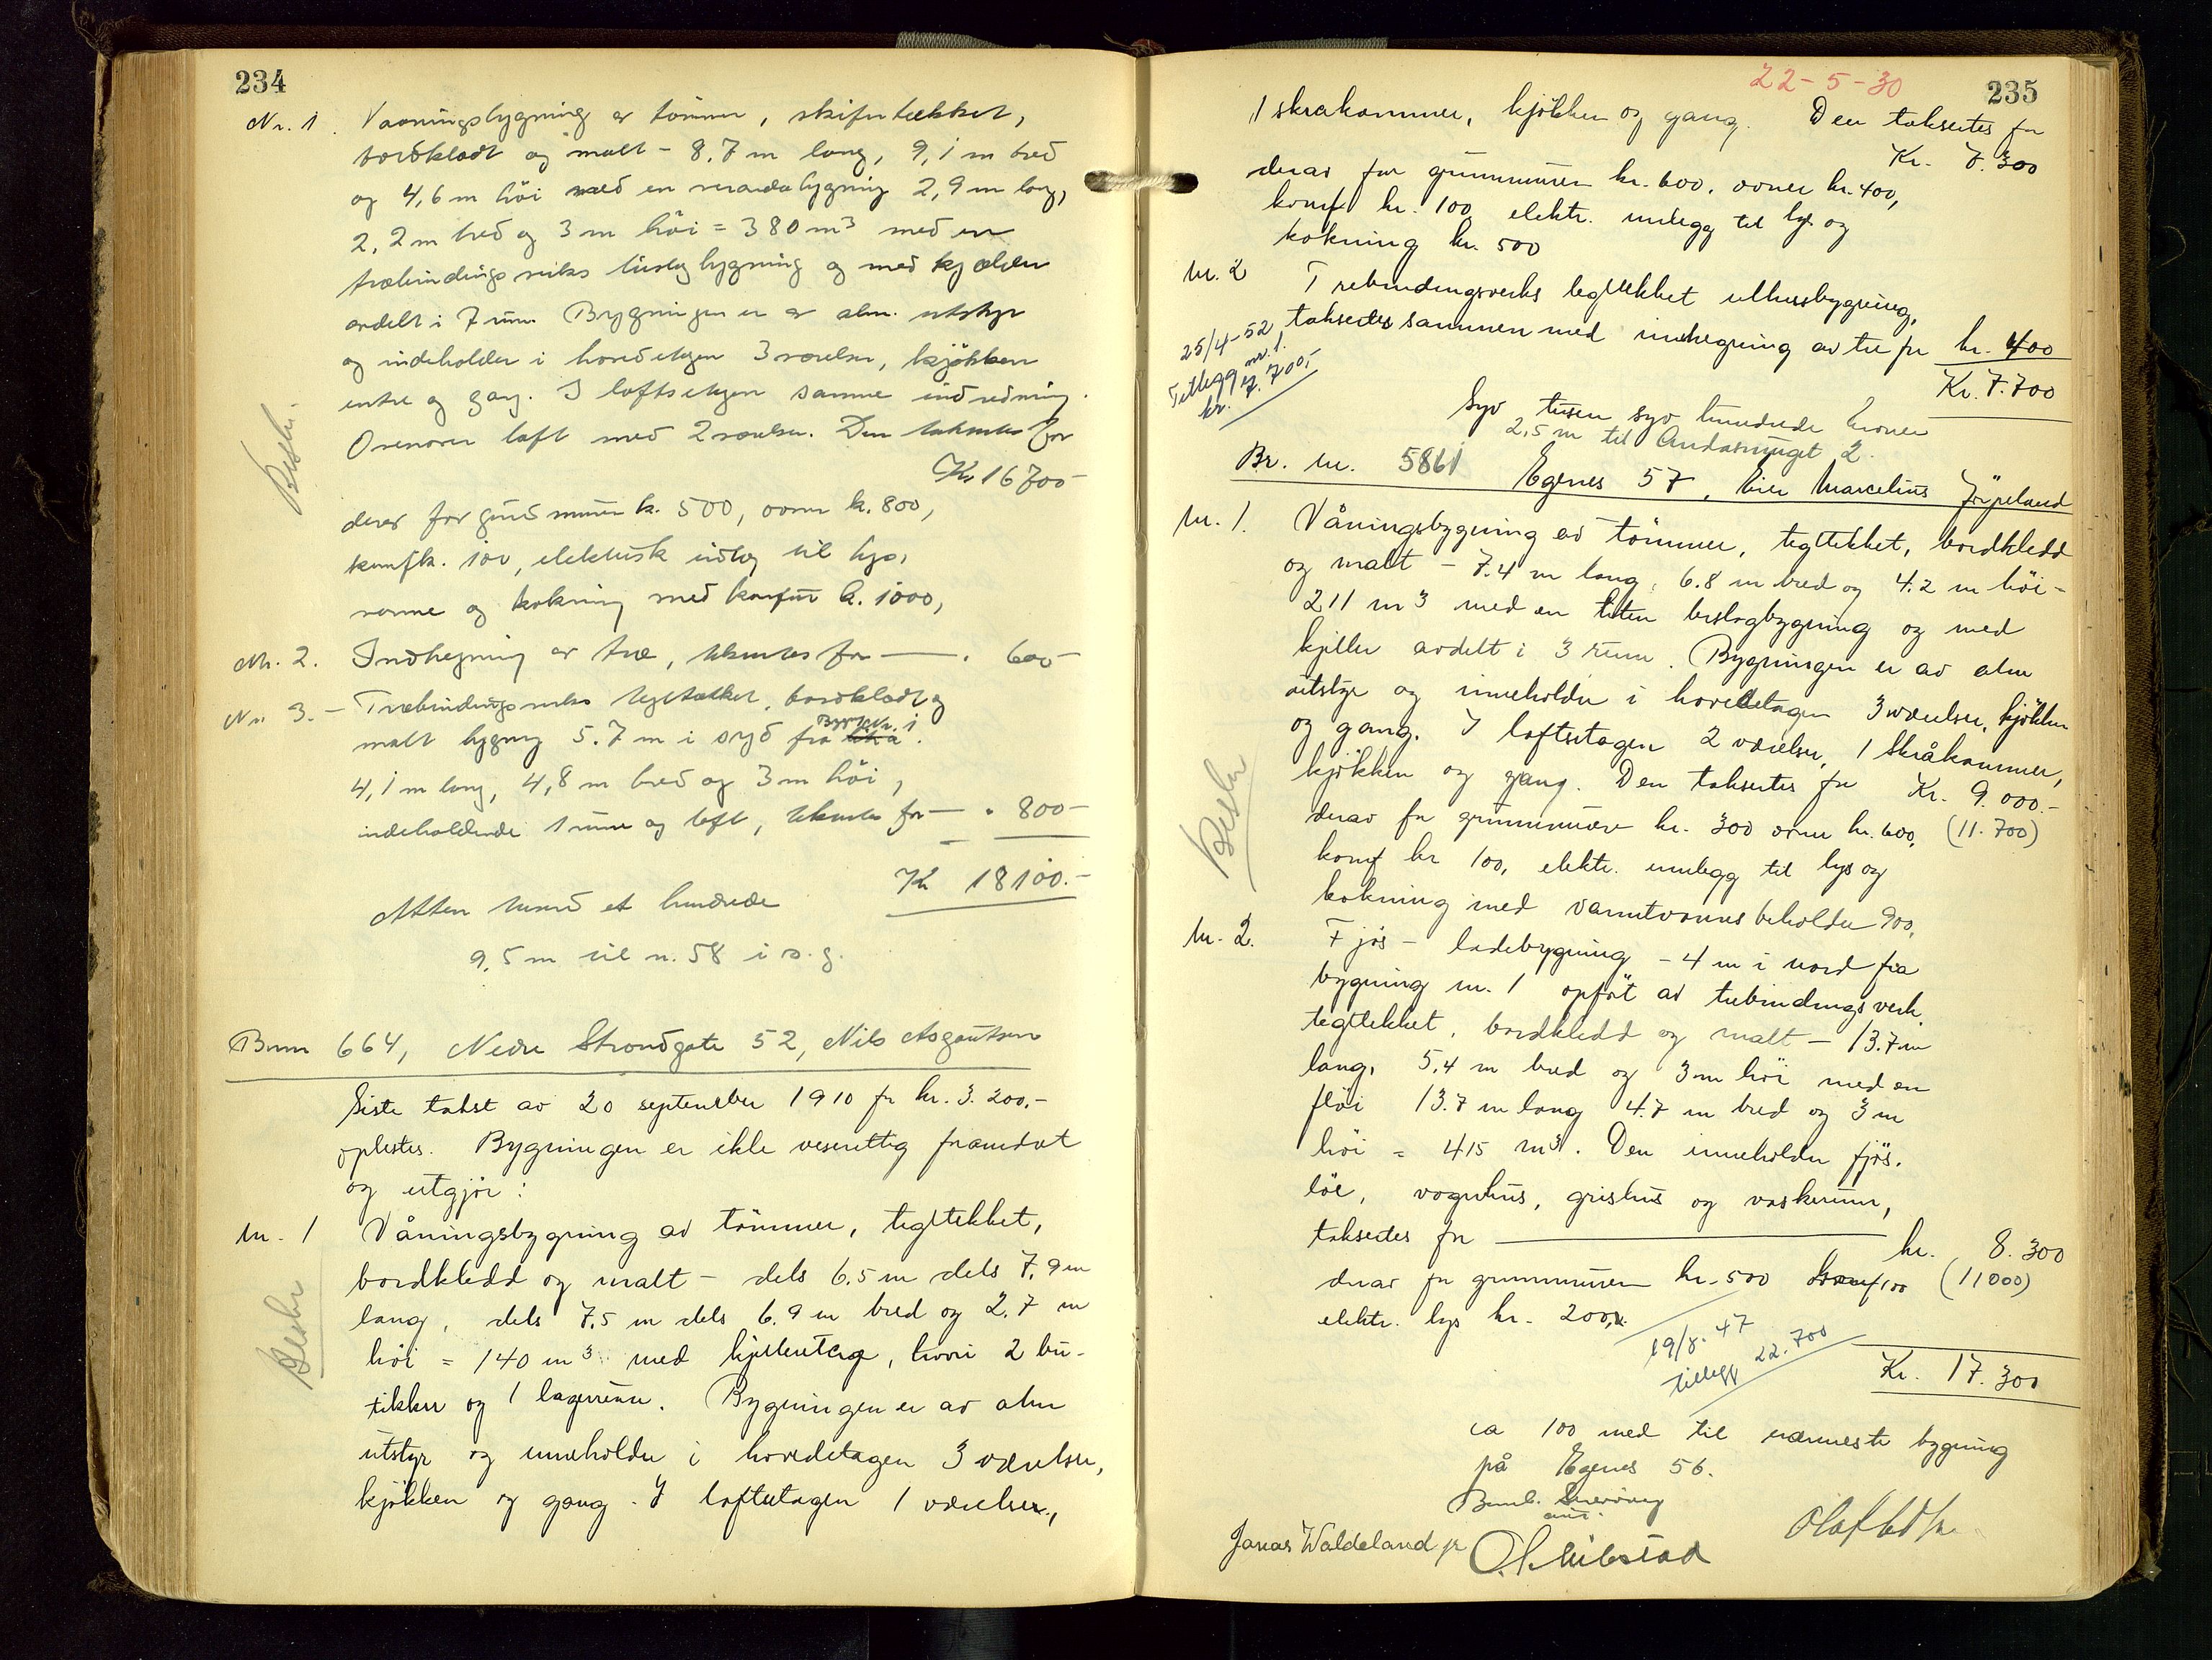 234
Nr. 1. Vaaningsbygning av tömmer, skifertækket,
bordklædt og malt - 8,7 m lang, 9,1 m bred
og 4,6 m höi med en verandabygning 2,9 m lang,
2,2 m bred og 3 m höi = 380 m3 med en
træbindingsverks bislagbygning og med kjælder
avdelt i 7 rum. Bygningen er av alm. utstyr
og indeholder i hovedetagen 3 værelser, kjökken
entre og gang. I loftsetagen samme indredning.
Ovenover loft med 2 værelser. Den takseres for
Kr 16700-
derav for grundmuren kr. 500, ovner kr. 800,
komf kr. 100, elektrisk indlæg til lys,
varme og kokning med komfur kr. 1000,
Nr. 2. Indhegning av træ, takseres for — . 600-
Nr. 3. - Træbindingsverks tegltækket, bordklædt og
malt bygning 5.7 m i syd fra Bygn. nr. 1
4,1 m lang, 4,8 m bred og 3 m höi,
indeholdende 1 rum og loft, takseres for — " 800-
Kr 18100.-
Atten tusind et hundrede
9,5 m til n. 58 i s. g.
Br nr 664, Nedre Strandgate 52, Nils Asgautsen
Siste takst av 20 september 1910 for kr. 3.200.-
oplestes. Bygningen er ikke vesentlig forandret
og utgjör:
Nr. 1 Våningsbygning av tömmer, tegltekket,
bordkledd og malt - dels 6.5 m dels 7.9 m
lang, dels 7,5 m dels 6.9 m bred og 2.7 m
höi = 140 m3 med kjelleretage, hvori 2 bu-
tikker og 1 lagerrum. Bygningen er av alm
utstyr og inneholder i hovedetagen 3 værelser,
kjökken og gang. I loftsetagen 1 værelser,
22-5-30
235
1 skråkammer, kjökken og gang. Den takseres for
Kr. 7.300
derav for grunnmuren kr. 600. ovner kr. 400,
komf kr. 100 elektr. innlegg til lys og
kokning kr. 500
Nr. 2 Trebindingsverks tegltekket uthusbygning,
takseres sammen med innhegning av tre for kr. 400
Kr. 7.700
25/4-52
Tillegg nr. 1.
kr. 700,-
Syv tusen syv hundrede kroner
2,5 m til Andasmuget 2.
Br. nr. 5861 Egenes 57, eier Marcelius Jörpeland
Nr. 1. Våningsbygning av tömmer, tegltekket, bordkledd
og malt - 7.4 m lang, 6.8 m bred og 4.2 m höi -
211 m3 med en liten bislagbygning og med
kjeller avdelt i 3 rum. Bygningen er av alm
utstyr og inneholder i hovedetagen 3 værelser, kjökken
og gang. I loftsetagen 2 værelser, 1 skråkammer,
kjökken og gang. Den takseres for Kr. 9.000.-
derav for grunnmuren kr. 300 ovner kr. 600, (11.700)
komf kr 100, elektr. innlegg til lys og
kokning med varmtvannsbeholder 900,
Nr. 2. Fjös - ladebygning - 4 m i nord fra
bygning nr. 1 opfört av trebindingsverk
tegltekket, bordkledd og malt - 13.7 m
lang, 5,4 m bred og 3 m höi med en
flöi 13.7 m lang 4.7 m bred og 3 m
höi = 415 m3. Den inneholder fjös.
löe, vognhus, grishus og vaskerum,
takseres for — kr. 8.300
derav for grunnmuren kr. 500 komf 100 (11000)
elektr. lys kr. 200,
19/8. 47
tillegg 22.700
Kr. 17.300
ca 100 med til nærmeste bygning
på Egenes 56.
Jonas Waldeland jr